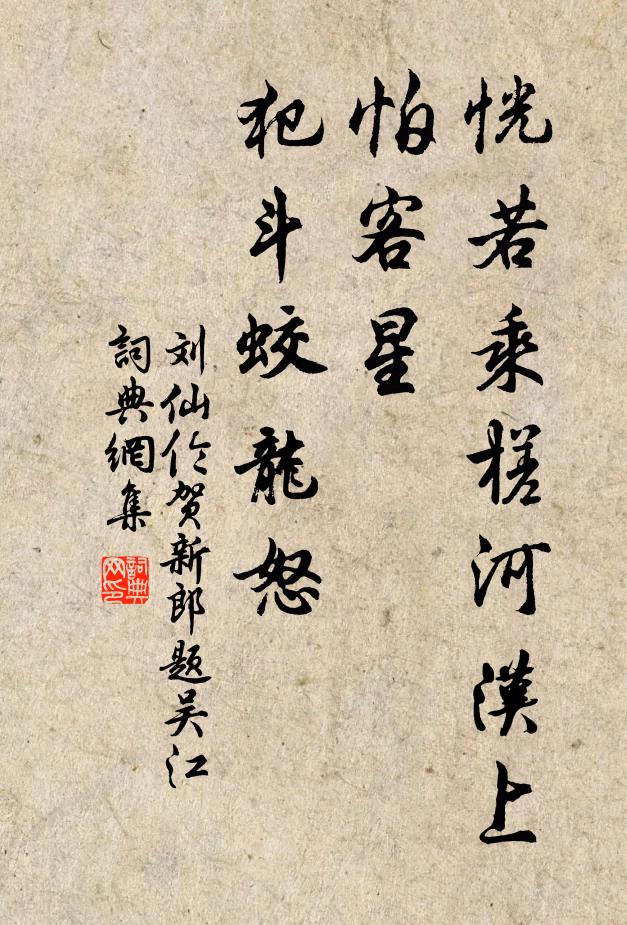 恍若乘槎河漢上
怕客星
犯斗蛟龍怒
刘仙伦贺新郎题吴江
詞典網集
詞典网印